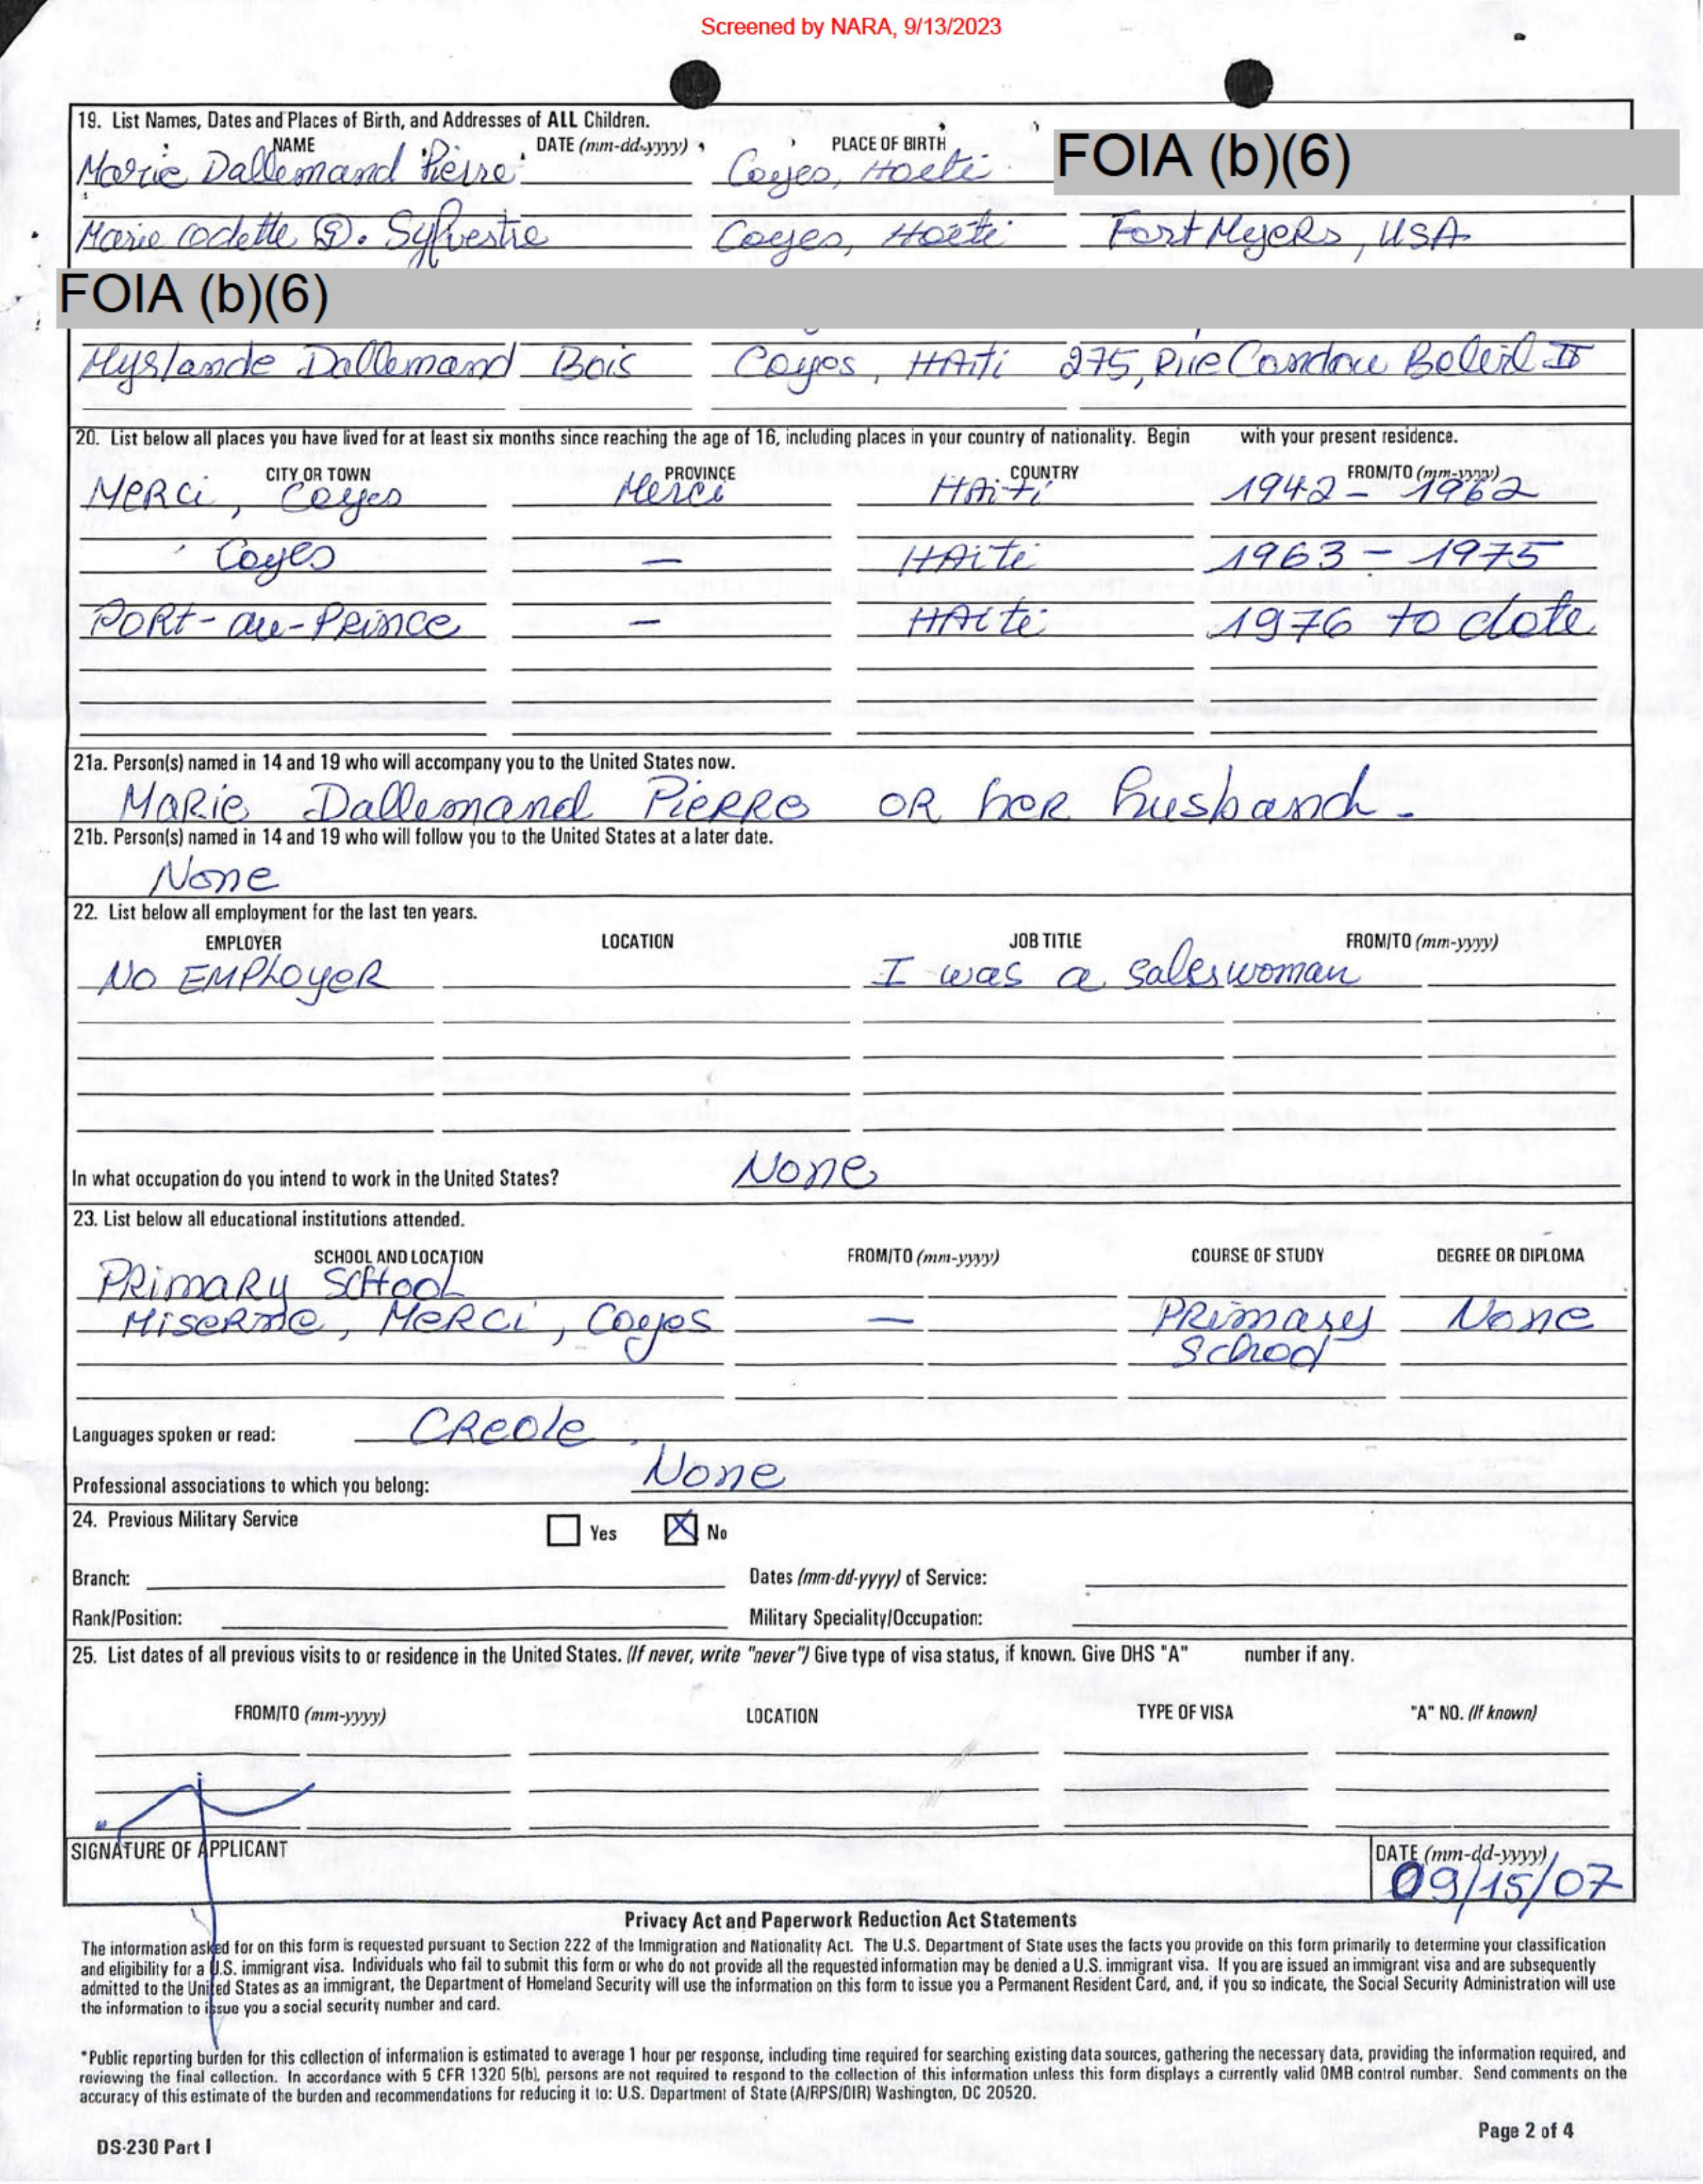 Screened by NARA, 9/13/2023
19. List Names, Dates and Places of Birth, and Addresses of ALL Children.
NAME DATE (mm-dd-yyyy) PLACE OF BIRTH
FOIA (b)(6)
Marie Dallemand Pierre Cayes, Haiti
Marie Odette D. Sylvestre Cayes, Haiti Fort Myers, USA
FOIA (b)(6)
Myslande Dallemand Bois Cayes, HAiti 275, Rue
20. List below all places you have lived for at least six months since reaching the age of 16, including places in your country of nationality. Begin with your present residence.
CITY OR TOWN PROVINCE COUNTRY FROM/TO (mm-yyyy)
MERCi, Cayes Merci HAiti 1942 - 1962
Cayes - HAiti 1963 - 1975
PORt-au-Prince - HAiti 1976 to date
21a. Person(s) named in 14 and 19 who will accompany you to the United States now.
MARie Dallemand PieRRe OR heR husband.
21b. Person(s) named in 14 and 19 who will follow you to the United States at a later date.
None
22. List below all employment for the last ten years.
EMPLOYER LOCATION JOB TITLE FROM/TO (mm-yyyy)
NO EMPLOyeR I was a saleswoman
In what occupation do you intend to work in the United States? None
23. List below all educational institutions attended.
SCHOOL AND LOCATION FROM/TO (mm-yyyy) COURSE OF STUDY DEGREE OR DIPLOMA
PRimaRy SCHooL
MERCi, Cayes - PRimary None
School
Languages spoken or read: CReole
Professional associations to which you belong: None
24. Previous Military Service Yes No
Branch: Dates (mm-dd-yyyy) of Service:
Rank/Position: Military Speciality/Occupation:
25. List dates of all previous visits to or residence in the United States. (If never, write "never") Give type of visa status, if known. Give DHS "A" number if any.
FROM/TO (mm-yyyy) LOCATION TYPE OF VISA "A" NO. (If known)
SIGNATURE OF APPLICANT DATE (mm-dd-yyyy)
09/15/07
Privacy Act and Paperwork Reduction Act Statements
The information asked for on this form is requested pursuant to Section 222 of the Immigration and Nationality Act. The U.S. Department of State uses the facts you provide on this form primarily to determine your classification
and eligibility for a U.S. immigrant visa. Individuals who fail to submit this form or who do not provide all the requested information may be denied a U.S. immigrant visa. If you are issued an immigrant visa and are subsequently
admitted to the United States as an immigrant, the Department of Homeland Security will use the information on this form to issue you a Permanent Resident Card, and, if you so indicate, the Social Security Administration will use
the information to issue you a social security number and card.
*Public reporting burden for this collection of information is estimated to average 1 hour per response, including time required for searching existing data sources, gathering the necessary data, providing the information required, and
reviewing the final collection. In accordance with 5 CFR 1320 5(b), persons are not required to respond to the collection of this information unless this form displays a currently valid OMB control number. Send comments on the
accuracy of this estimate of the burden and recommendations for reducing it to: U.S. Department of State (A/RPS/DIR) Washington, DC 20520.
DS-230 Part I Page 2 of 4